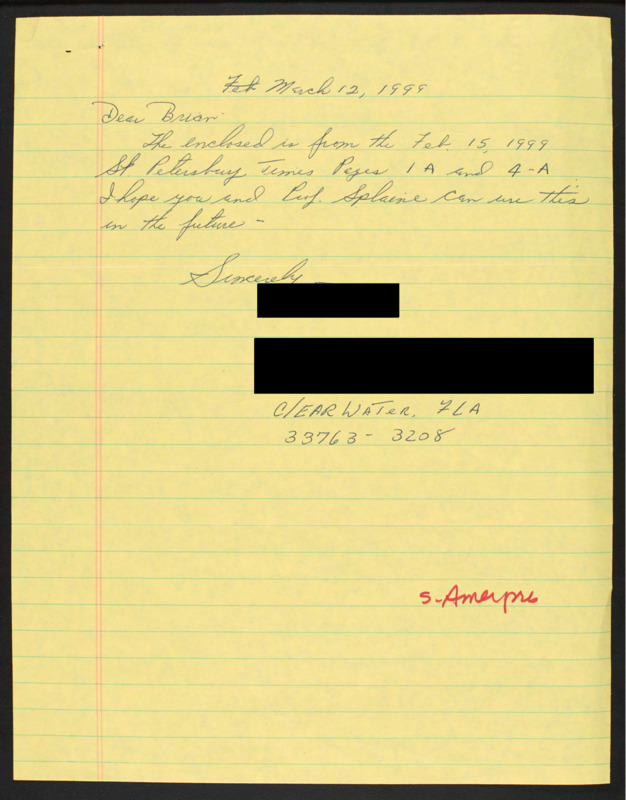 Feb March 12, 1999
Dear Brian
The enclosed is from the Feb. 15, 1999
St Petersburg Times Pages 1A and 4-A
I hope you and Prof. Splaine can use this
in the future -
Sincerely -
CLEARWATER, FLA
33763-3208
s-Amerpres